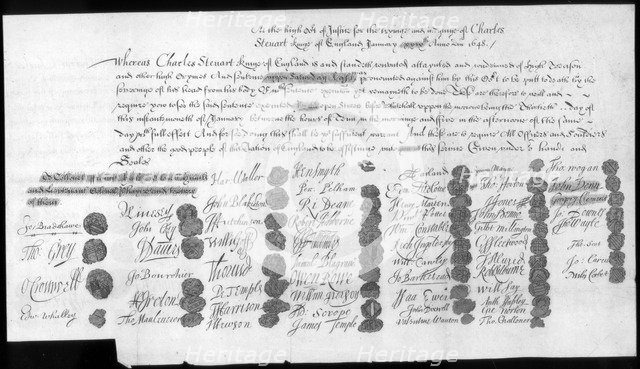 At the high Cort of Justice for the tryinge and iudginge of Charles
Steuart Kinge of England January xxixth Anno Dom 1648.
Whereas Charles Steuart Kinge of England is and standeth convicted attaynted and condemned of High Treason
and other high Crymes And Sentence uppon Saturday last was pronounced against him by this Cort to be putt to death by the
severinge of his head from his body Of wch Sentence execucon yet remayneth to be done These are therefore to will and
require you to see the said Sentence executed In the open Streete before Whitehall uppon the morrowe being the Thirtieth day of
this instante moneth of January betweene the houres of Tenn in the morninge and Five in the afternoone of the same
day wth full effect And for soe doing this shall be yor sufficient warrant And these are to require All Officers and Souldiers
and other the good people of this Nation of England to be assistinge unto you in this Service Given under or hands and
Seales
To Collonell
and Lieutenant Colonell Phayre and to every
of them
Jo Bradshawe
Tho Grey
O Cromwell
Edw Whalley
M Livesey
John Okey
J Danvers
Jo Bourchier
H Ireton
Tho Mauleverer
Har Waller
John Blakiston
J Hutchinson
Willi Goff
Tho Pride
Pe Temple
T Harrison
J Hewson
Hen Smyth
Per Pelham
Ri Deane
Robert Tichborne
H Edwardes
Daniel Blagrave
Owen Rowe
William Purefoy
Ad Scrope
James Temple
A Garland
Edm Ludlowe
Henry Marten
Vinct Potter
Wm Constable
Rich Ingoldesby
Will Cawley
Jo Barkestead
Isaa Ewer
John Dixwell
Valentine Wauton
Symon Mayne
Tho Horton
J Jones
John Penne
Gilbt Millington
G Fleetwood
J Alured
Robt Lilburne
Will Say
Anth Stapley
Gre Norton
Tho Challoner
Tho Wogan
John Venn
Gregory Clement
Jo Downes
Tho Wayte
Tho Scot
Jo Carew
Miles Corbet
Heritage